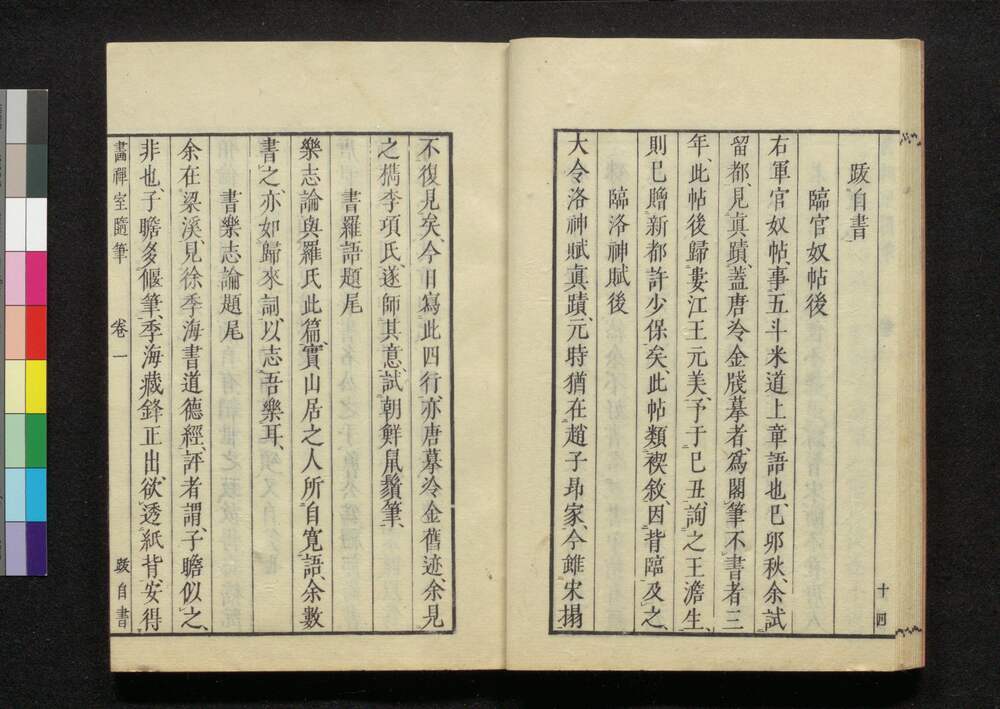 十四
跋自書
臨官奴帖後
右軍官奴帖、事五斗米道上章語也、巳卯秋、余試
留都、見眞蹟、蓋唐冷金牋摹者、爲閣筆不書者三
年、此帖後歸婁江王元美、予于巳丑、詢之王澹生、
則巳贈新都許少保矣、此帖類禊敘、因背臨及之、
臨洛神賦後
大令洛神賦眞蹟、元時猶在趙子昂家、今雖宋搨
不復見矣、今日寫此四行、亦唐摹冷金舊迹、余見
之檇李項氏、遂師其意、試朝鮮鼠鬚筆、
書羅語題尾
樂志論與羅氏此篇、實山居之人所自寬語、余數
書之、亦如歸來詞、以志吾樂耳、
書樂志論題尾
余在梁溪、見徐季海書道德經、評者謂、子瞻似之、
非也、子瞻多偃筆、季海藏鋒正出、欲透紙背、安得
畵禪室隨筆 卷一 跋自書